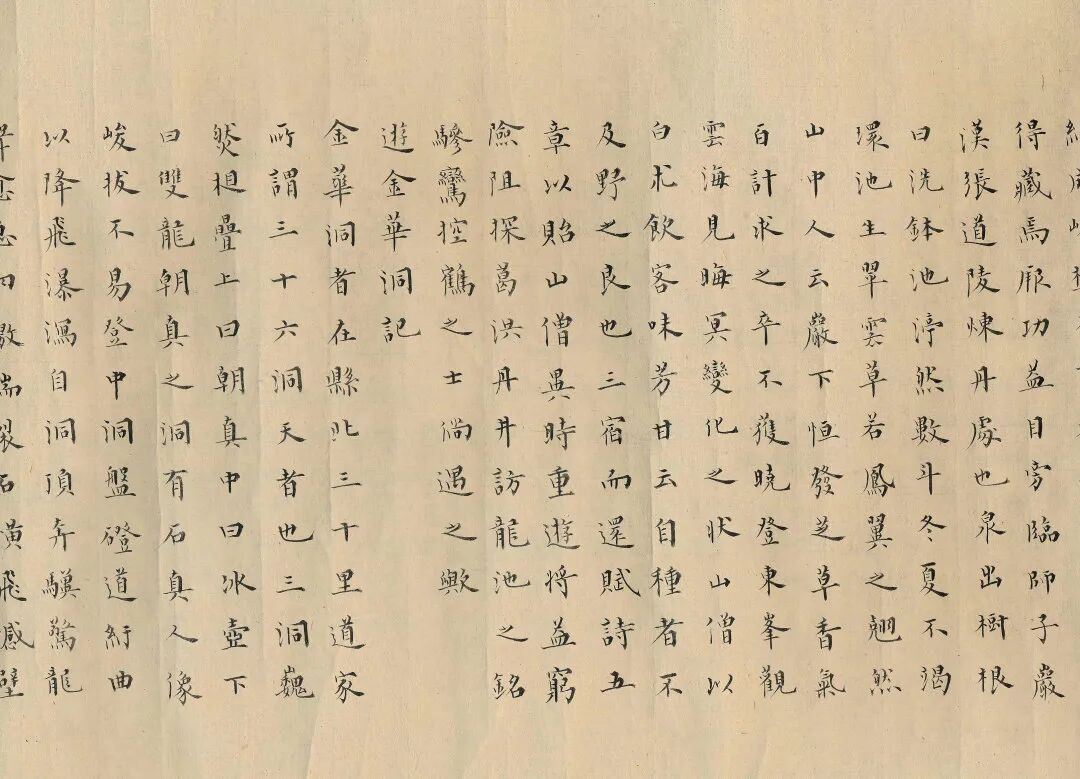 得藏焉厥功益目旁臨師子巖
漢張道陵煉丹處也泉出樹根
曰洗鉢池渟然數斗冬夏不渴
環池生翠雲草若鳳翼之翹然
山中人云巖下恒發芝草香氣
百計求之卒不獲曉登東峯觀
雲海見晦冥變化之狀山僧以
白朮飲客味芳甘云自種者不
及野之良也三宿而還賦詩五
章以貽山僧異時重遊將益窮
險阻探葛洪丹井訪龍池之銘
驂鸞控鶴之士倘遇之歟
遊金華洞記
金華洞者在縣北三十里道家
所謂三十六洞天者也三洞巍
然相疊上曰朝真中曰冰壺下
曰雙龍朝真之洞有石真人像
峻拔不易登中洞盤磴道紆曲
以降飛瀑瀉自洞頂奔驥驚龍
石潢飛感壁